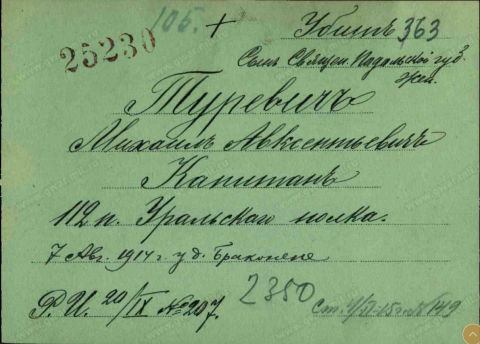 25230 106. + Убитъ 363
Сынъ Священ. Подольской губ.
жен.
Туревичъ
Михаилъ Авксентьевичъ
Капитанъ
112 п. Уральскаго полка.
7 Авг. 1914 г. у д. Браконене
Р. И. 20/IX № 207.
2350
Ст. 4/VI-15 г. № 149